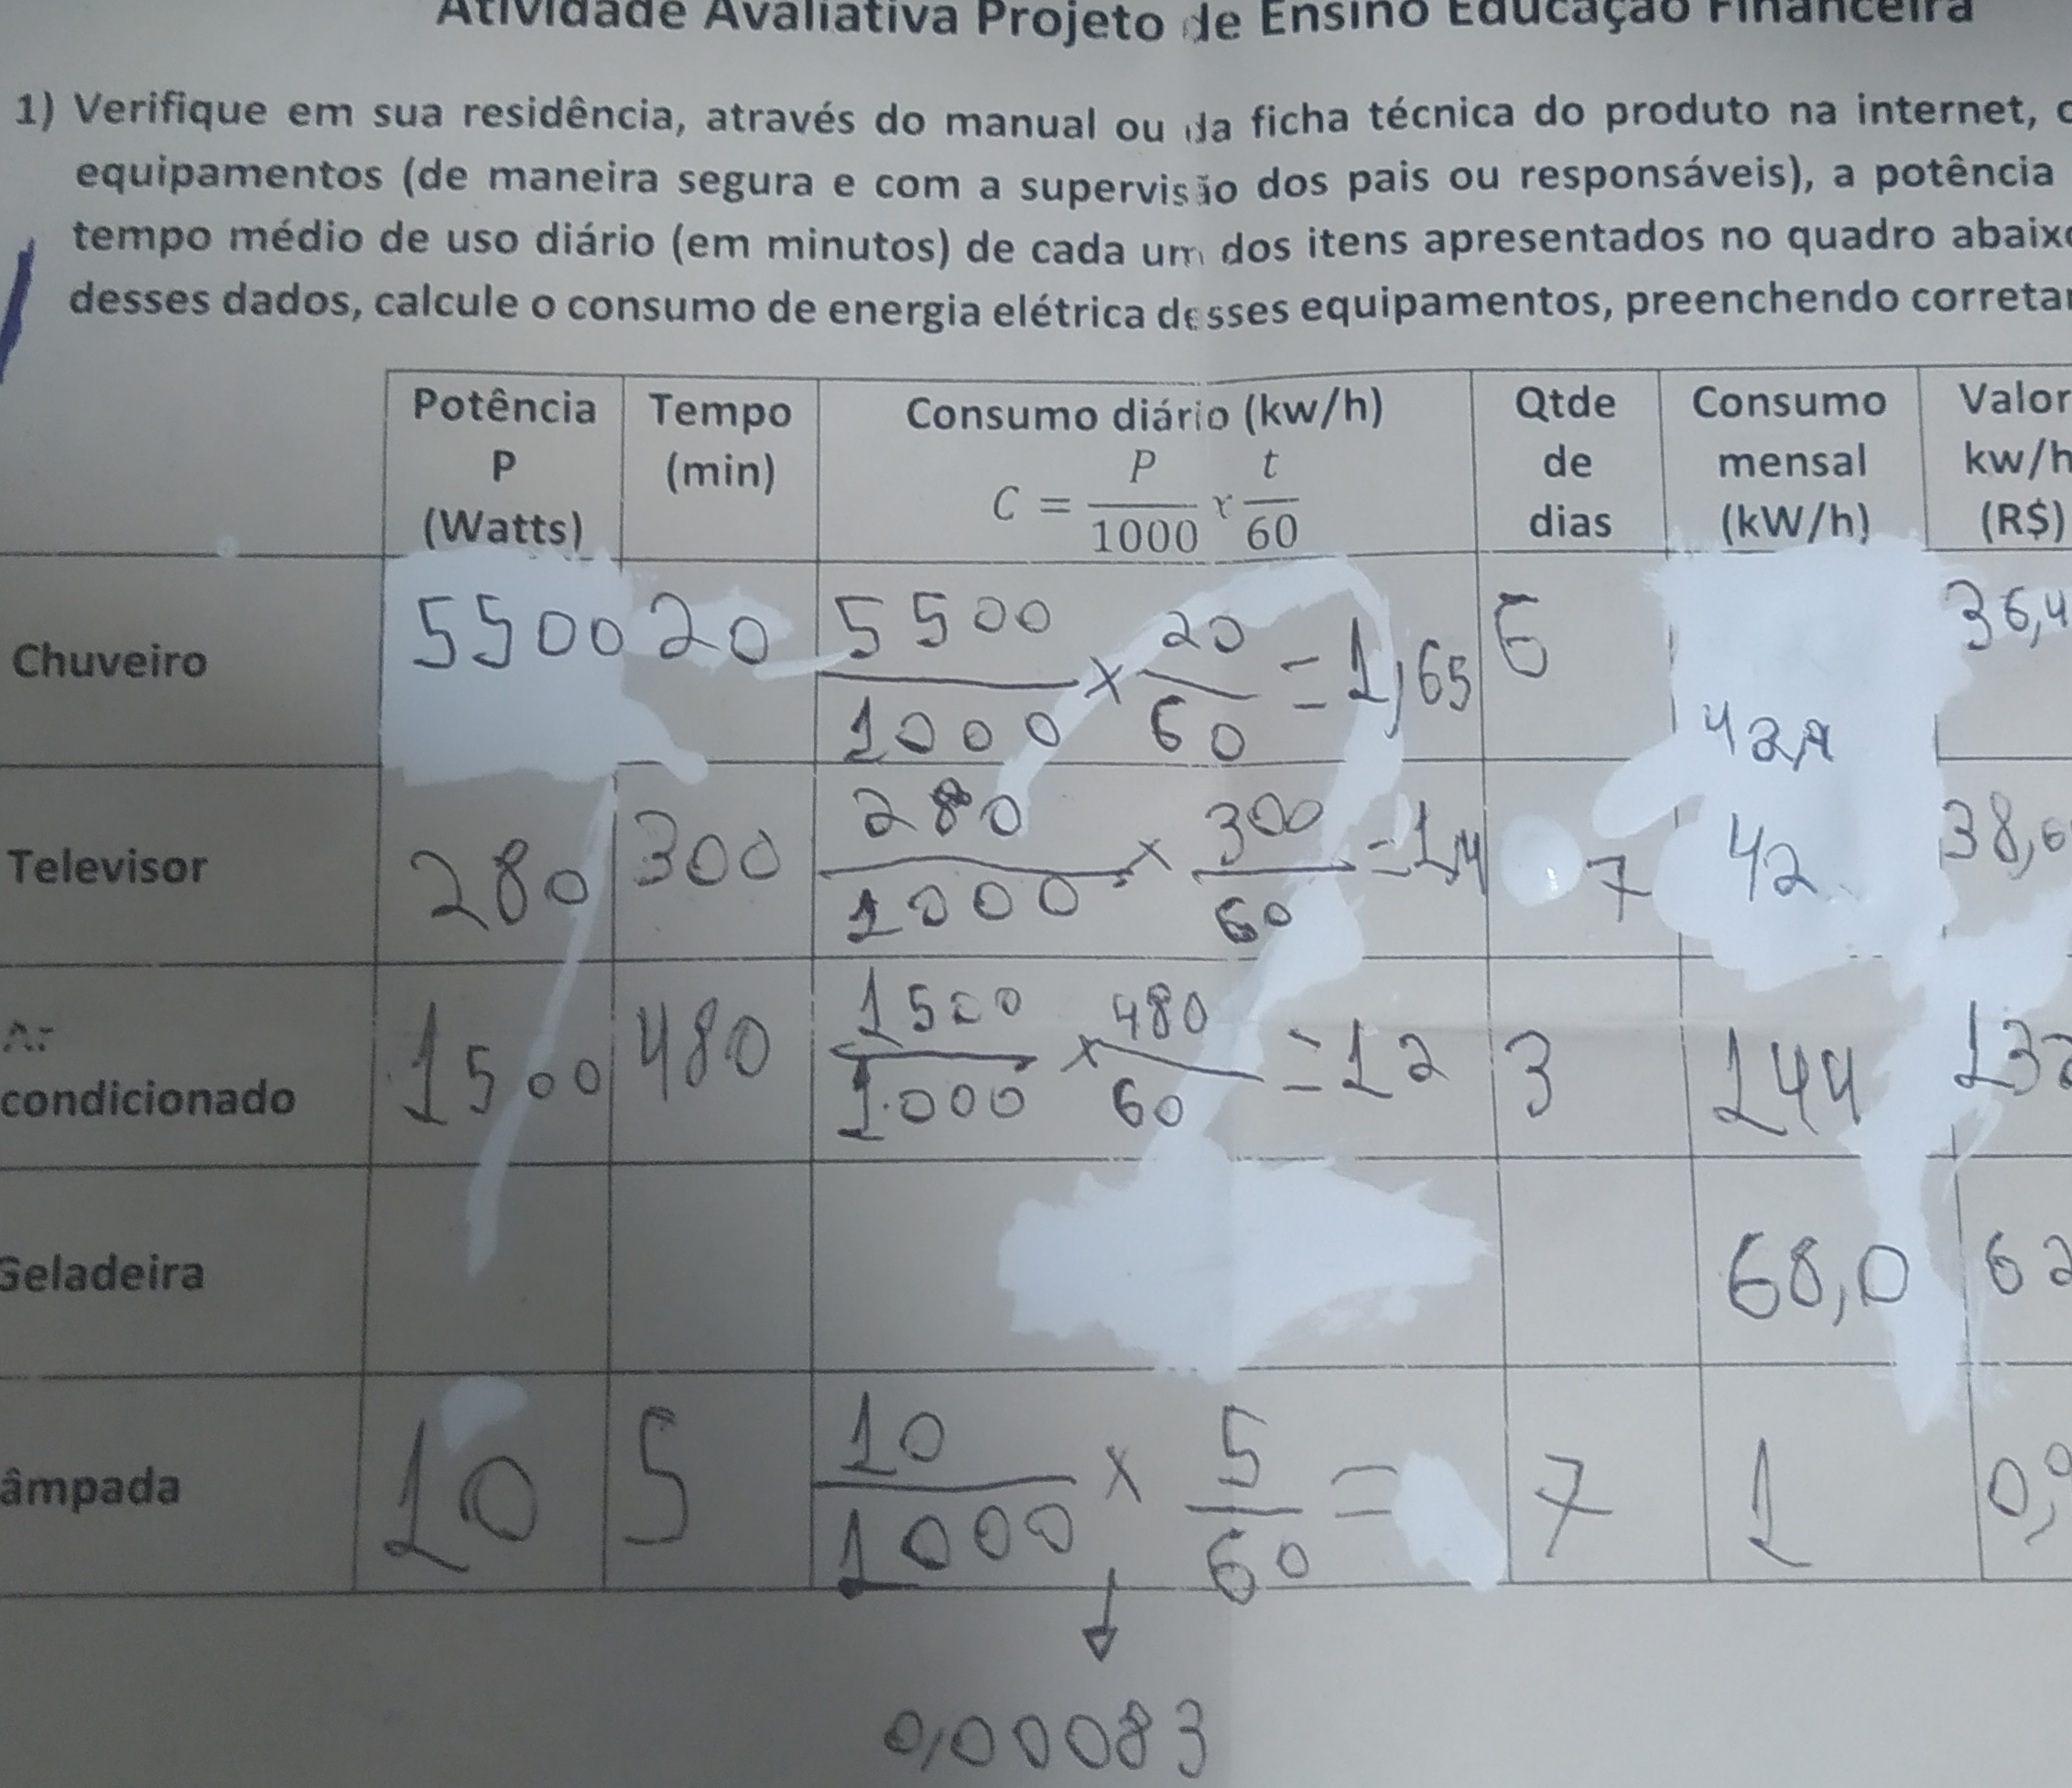 Atividade Avaliativa Projeto de Ensino Educação Financeira
1) Verifique em sua residência, através do manual ou da ficha técnica do produto na internet,
equipamentos (de maneira segura e com a supervisão dos pais ou responsáveis), a potência
tempo médio de uso diário (em minutos) de cada um dos itens apresentados no quadro abaixo
desses dados, calcule o consumo de energia elétrica desses equipamentos, preenchendo
Potência P (Watts) Tempo (min) Consumo diário (kw/h) C = P/1000 x t/60 Qtde de dias Consumo mensal (kW/h) Valor kw/h (R$)
Chuveiro 5500 20 5500/1000 x 20/60 = 1,65 6 36,4
Televisor 280 300 280/1000 x 300/60 = 1,4 7 42 38,6
Ar condicionado 1500 480 1500/1000 x 480/60 = 12 3 144 132
Geladeira 68,0 62
âmpada 10 5 10/1000 x 5/60 = 7 1 0,9
0,00083